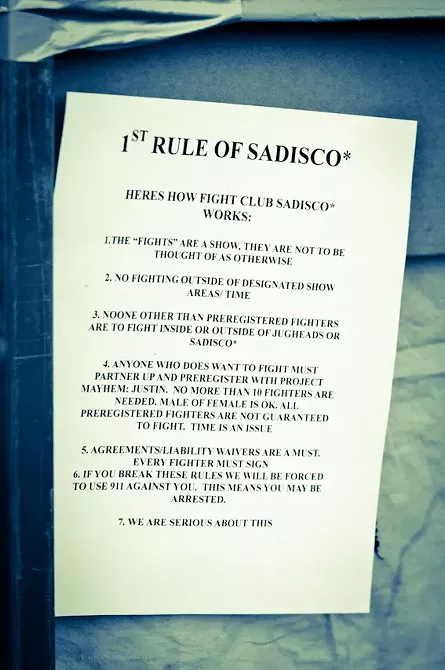 1ST RULE OF SADISCO*
HERES HOW FIGHT CLUB SADISCO*
WORKS:
1.THE “FIGHTS” ARE A SHOW, THEY ARE NOT TO BE
THOUGHT OF AS OTHERWISE
2. NO FIGHTING OUTSIDE OF DESIGNATED SHOW
AREAS/ TIME
3. NOONE OTHER THAN PREREGISTERED FIGHTERS
ARE TO FIGHT INSIDE OR OUTSIDE OF JUGHEADS OR
SADISCO*
4. ANYONE WHO DOES WANT TO FIGHT MUST
PARTNER UP AND PREREGISTER WITH PROJECT
MAYHEM: JUSTIN. NO MORE THAN 10 FIGHTERS ARE
NEEDED. MALE OF FEMALE IS OK. ALL
PREREGISTERED FIGHTERS ARE NOT GUARANTEED
TO FIGHT. TIME IS AN ISSUE
5. AGREEMENTS/LIABILITY WAIVERS ARE A MUST.
EVERY FIGHTER MUST SIGN
6. IF YOU BREAK THESE RULES WE WILL BE FORCED
TO USE 911 AGAINST YOU. THIS MEANS YOU MAY BE
ARRESTED.
7. WE ARE SERIOUS ABOUT THIS